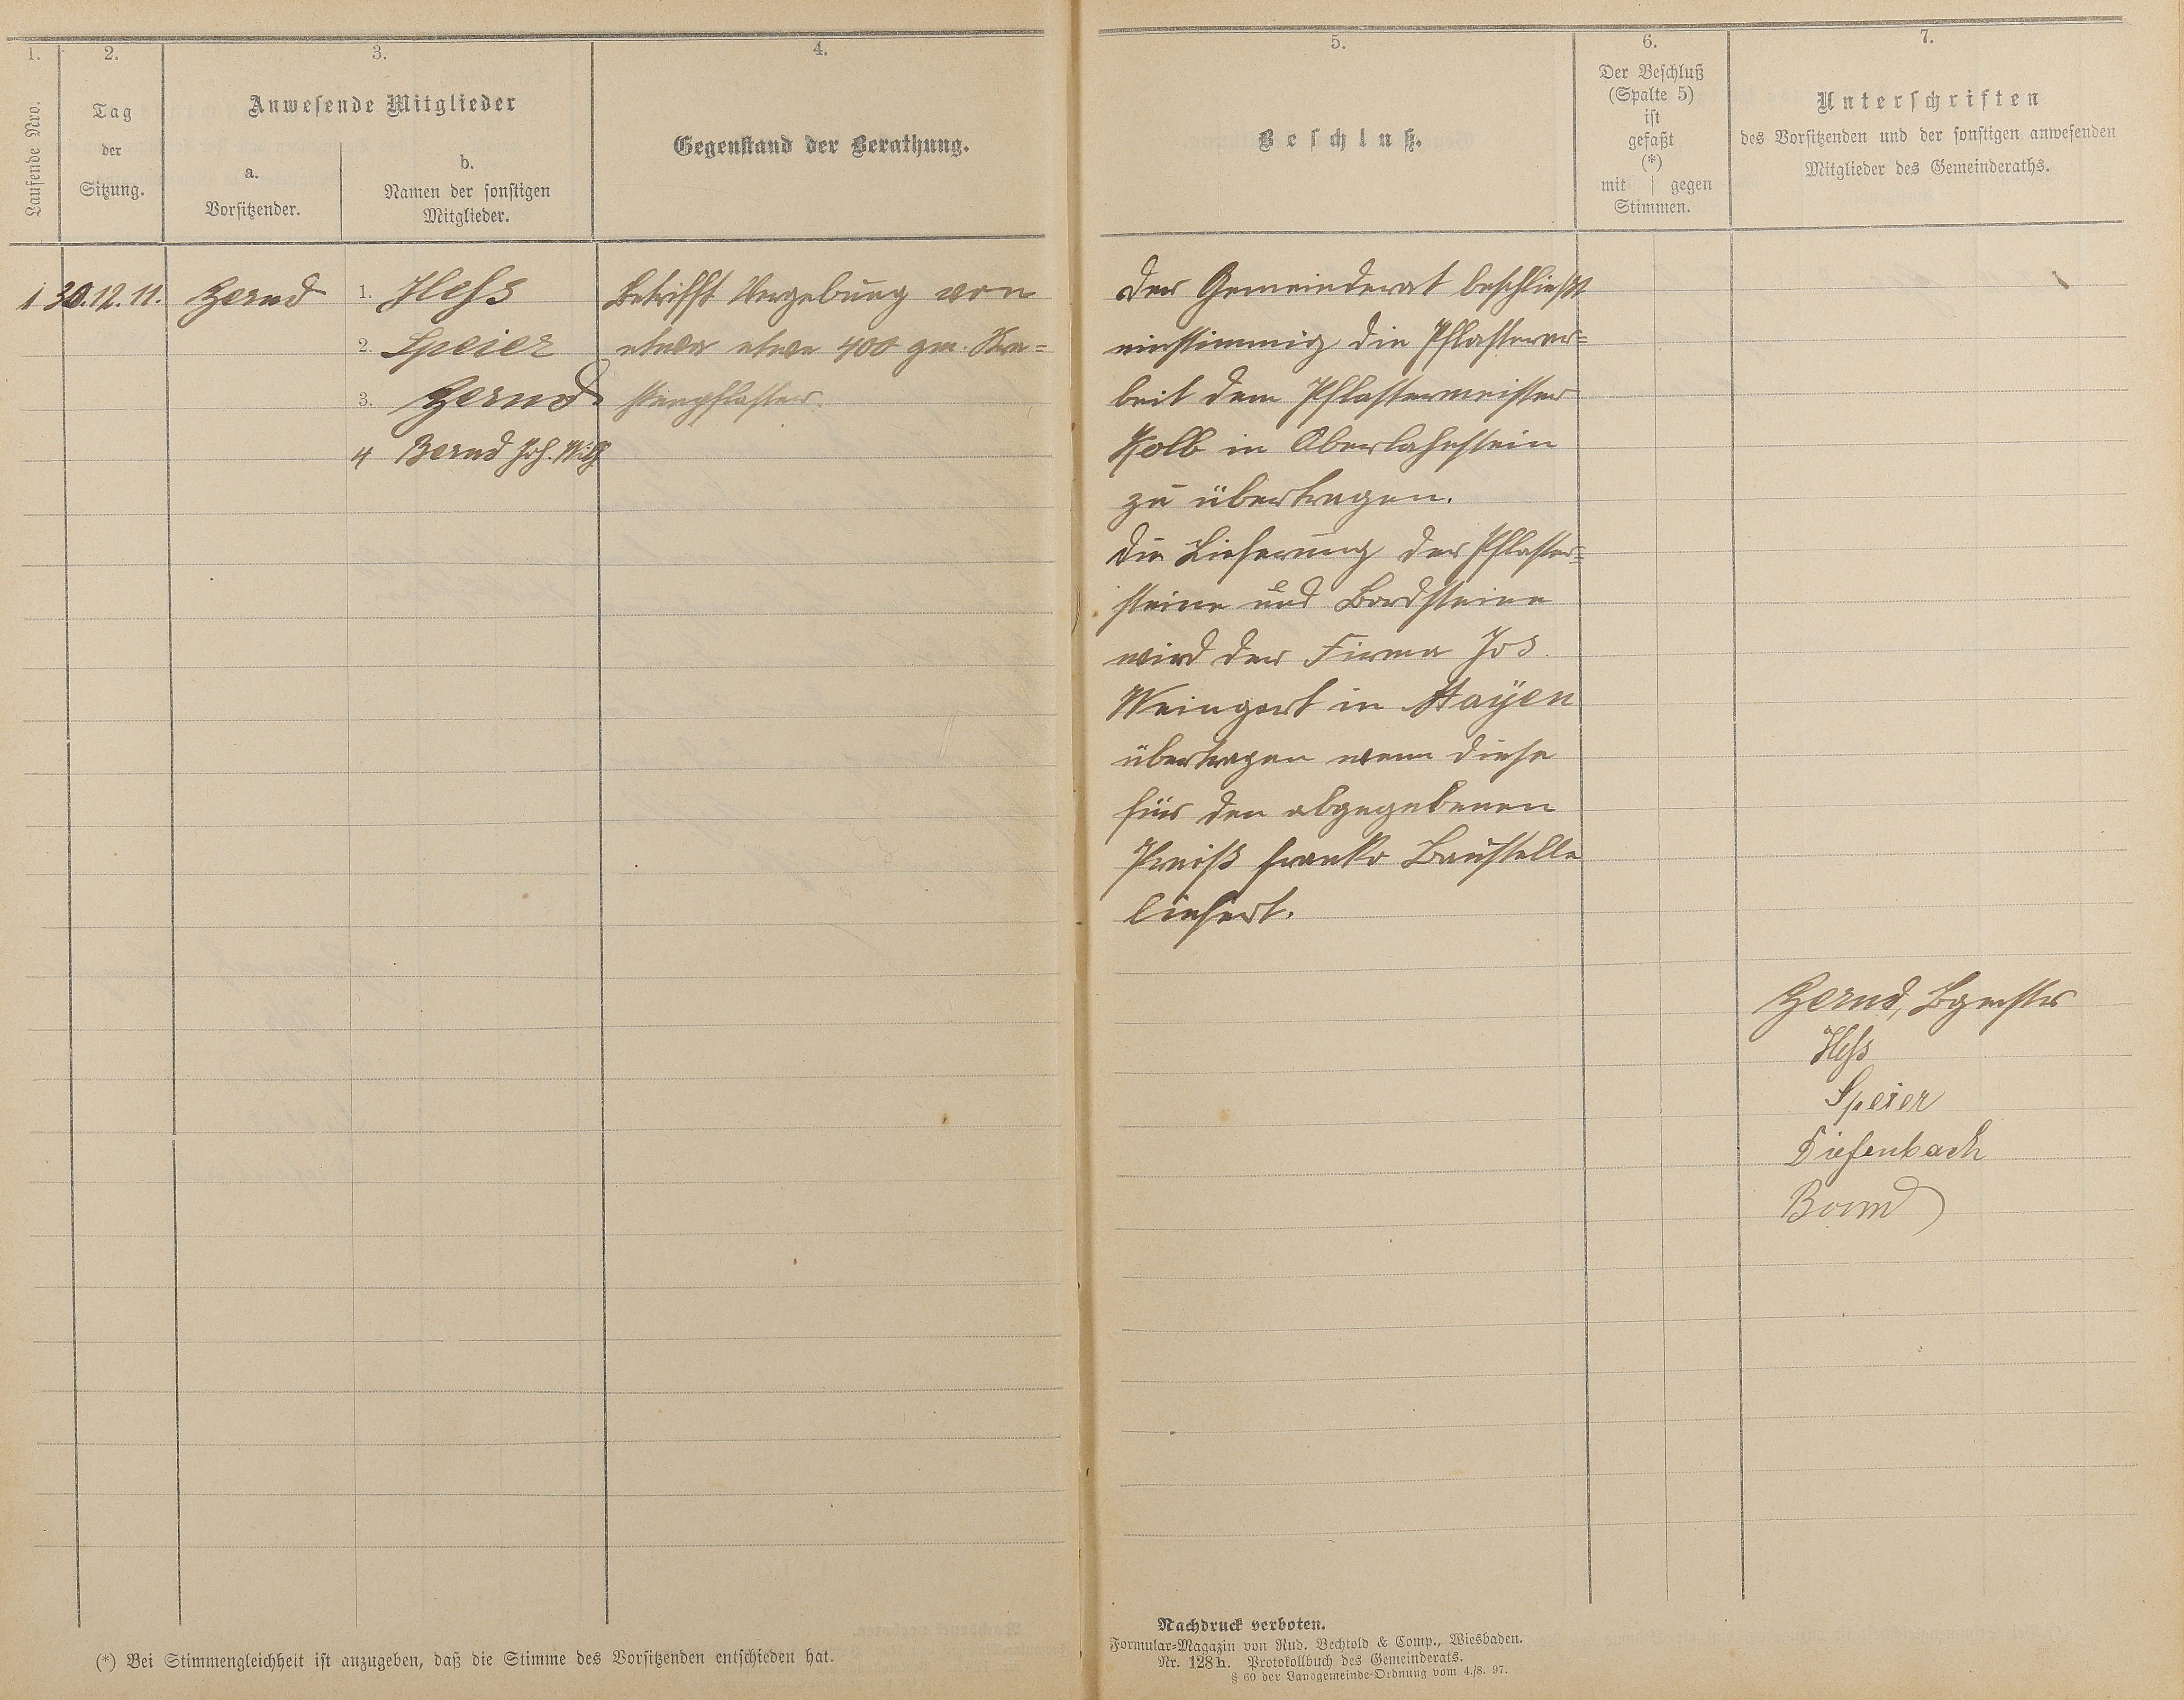 1.
Laufende Nro.
2.
Tag
der
Sitzung.
3.
Anwesende Mitglieder
a.
Vorsitzender.
b.
Namen der sonstigen
Mitglieder.
4.
Gegenstand der Berathung.
1
30.12.11.
Gernd
1. Heß
2. Speier
3. Gernd
4 Bernd Joh. Wilh
Betrifft Vergebung von
etwa etwa 400 qm.
steinpflaster.
5.
Beschluß.
6.
Der Beschluß
(Spalte 5)
ist
gefaßt
(*)
mit | gegen
Stimmen.
7.
Unterschriften
des Vorsitzenden und der sonstigen anwesenden
Mitglieder des Gemeinderaths.
Der Gemeinderat beschließt
einstimmig die Pflasterar=
beit dem Pflastermeister
Kolb in Oberlahnstein
zu übertragen.
Die Lieferung der Pflaster=
steine und Bordsteine
wird der Firma Jos.
Weingart in Mayen
übertragen wenn diese
für den abgegebenen
Preiß franko Baustelle
liefert.
Gernd, Bgmstr
Heß
Speier
Diefenbach
Bernd
(*) Bei Stimmengleichheit ist anzugeben, daß die Stimme des Vorsitzenden entschieden hat.
Nachdruck verboten.
Formular-Magazin von Rud. Bechtold & Comp., Wiesbaden.
Nr. 128h. Protokollbuch des Gemeinderats.
§ 60 der Landgemeinde-Ordnung vom 4./8. 97.